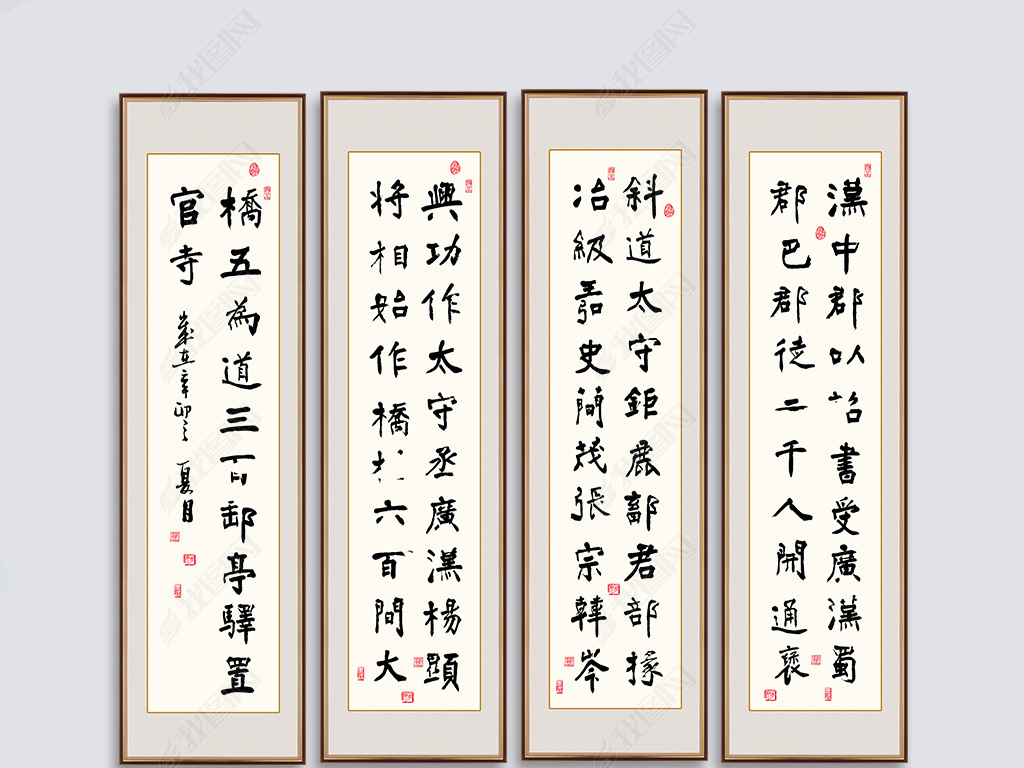 漢中郡以詔書受廣漢蜀
郡巴郡徒二千人開通褒
斜道太守鉅鹿鄐君部掾
冶級王弘史簡茂張宗韓岑
興功作太守丞廣漢楊顯
將相始作橋六百間大
橋五為道三百郵亭驛置
官寺
歲在辛卯之夏月
我图网